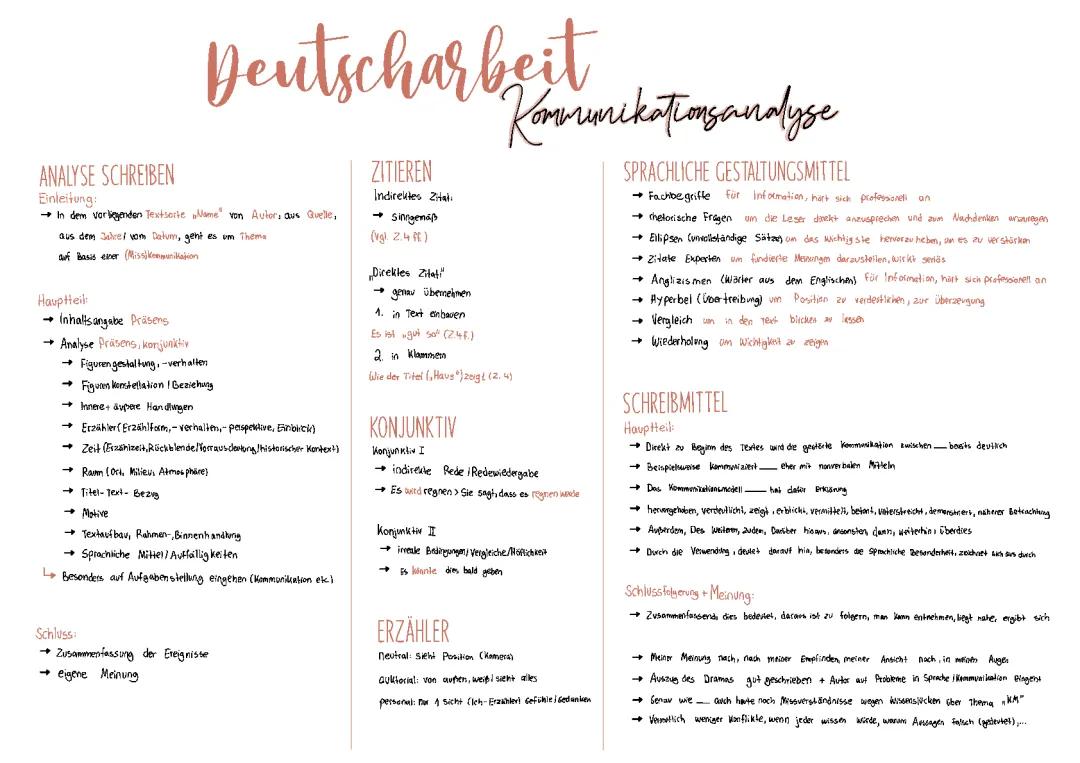 Deutscharbeit
Kommunikationsanalyse
ANALYSE SCHREIBEN
Einleitung:
→ In dem vorliegenden Textsorte „Name" von Autor, aus Quelle,
aus dem Jahr/ vom Datum, geht es um Thema
auf Basis einer (Miss)Kommunikation
Hauptteil:
→ Inhaltsangabe Präsens
→ Analyse Präsens, Konjunktiv
→ Figurengestaltung, -verhalten
→ Figurenkonstellation / Beziehung
→ Innere + äußere Handlungen
→ Erzähler (Erzählform, -verhalten, -perspektive, Einblick)
→ Zeit (Erzählzeit, Rückblende/Vorausdeutung/historischer Kontext)
→ Raum (Ort, Milieu, Atmosphäre)
→ Titel-Text-Bezug
→ Motive
→ Textaufbau, Rahmen-, Binnenhandlung
→ Sprachliche Mittel/Auffälligkeiten
↳ Besonders auf Aufgabenstellung eingehen (Kommunikation etc.)
Schluss:
→ Zusammenfassung der Ereignisse
→ eigene Meinung
ZITIEREN
Indirektes Zitat:
→ Sinngemäß
(Vgl. Z.4 ff.)
„Direktes Zitat:"
→ genau übernehmen
1. in Text einbauen
Es ist „gut so" (Z.4f.)
2. in Klammern
Wie der Titel („Haus") zeigt (Z. 4)
KONJUNKTIV
Konjunktiv I
→ indirekte Rede / Redewiedergabe
→ Es wird regnen > Sie sagt, dass es regnen würde
Konjunktiv II
→ irreale Bedingungen/Vergleiche/Höflichkeit
→ Es könnte dies bald geben
ERZÄHLER
neutral: sieht Position (Kamera)
auktorial: von außen, weiß/sieht alles
personal: nur 1 Sicht (Ich-Erzähler) Gefühle/Gedanken
SPRACHLICHE GESTALTUNGSMITTEL
→ Fachbegriffe für Information, hört sich professionell an
→ rhetorische Fragen um die Leser direkt anzusprechen und zum Nachdenken anzuregen
→ Ellipsen (unvollständige Sätze) um das Wichtigste hervorzuheben, um es zu verstärken
→ Zitate Experten um fundierte Meinungen darzustellen, wirkt seriös
→ Anglizismen (Wörter aus dem Englischen) für Information, hört sich professionell an
→ Hyperbel (Übertreibung) um Position zu verdeutlichen, zur Überzeugung
→ Vergleich um in den Text blicken zu lassen
→ Wiederholung um Wichtigkeit zu zeigen
SCHREIBMITTEL
Hauptteil:
→ Direkt zu Beginn des Textes wird die gestörte Kommunikation zwischen ___ bereits deutlich
→ Beispielsweise kommuniziert ___ eher mit nonverbalen Mitteln
→ Das Kommunikationsmodell ___ hat dafür Erklärung
→ hervorgehoben, verdeutlicht, zeigt, erblickt, vermittelt, betont, unterstreicht, demonstriert, näherer Betrachtung
→ Außerdem, Des Weiteren, zudem, Darüber hinaus, ansonsten, dann, weiterhin, überdies
→ Durch die Verwendung, deutet darauf hin, besonders die sprachliche Besonderheit, zeichnet sich aus durch
Schlussfolgerung + Meinung:
→ Zusammenfassend, dies bedeutet, daraus ist zu folgern, man kann entnehmen, liegt nahe, ergibt sich
→ Meiner Meinung nach, nach meiner Empfinden, meiner Ansicht nach, in meinen Augen
→ Auszug des Dramas gut geschrieben + Autor auf Probleme in Sprache/Kommunikation eingeht
→ Genau wie ___ auch heute noch Missverständnisse wegen Wissenslücken über Thema „KM"
→ Vermutlich weniger Konflikte, wenn jeder wissen würde, warum Aussagen falsch (gedeutet),...